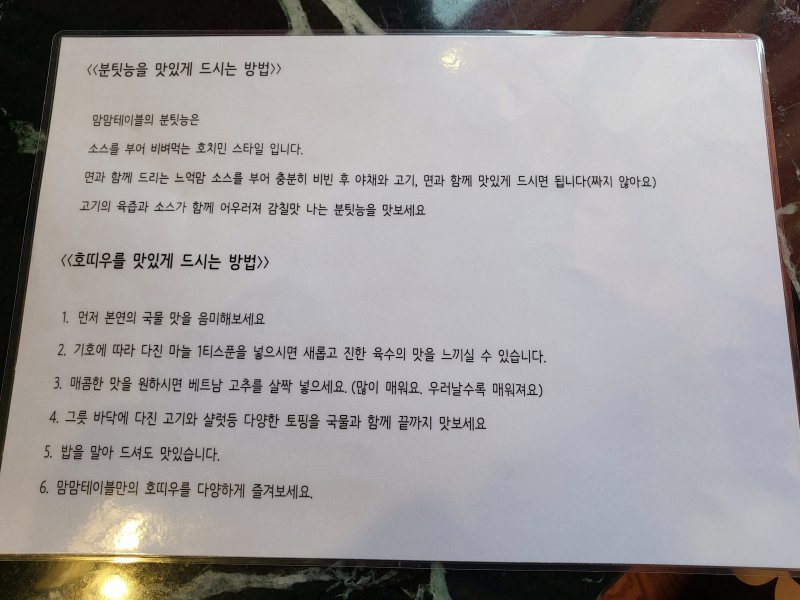 <<분팃능을 맛있게 드시는 방법>>
맘맘테이블의 분팃능은
소스를 부어 비벼먹는 호치민 스타일 입니다.
면과 함께 드리는 느억맘 소스를 부어 충분히 비빈 후 야채와 고기, 면과 함께 맛있게 드시면 됩니다(짜지 않아요)
고기의 육즙과 소스가 함께 어우러져 감칠맛 나는 분팃능을 맛보세요
<<호띠우를 맛있게 드시는 방법>>
1. 먼저 본연의 국물 맛을 음미해보세요
2. 기호에 따라 다진 마늘 1티스푼을 넣으시면 새롭고 진한 육수의 맛을 느끼실 수 있습니다.
3. 매콤한 맛을 원하시면 베트남 고추를 살짝 넣으세요. (많이 매워요. 우러날수록 매워져요)
4. 그릇 바닥에 다진 고기와 샬럿등 다양한 토핑을 국물과 함께 끝까지 맛보세요
5. 밥을 말아 드셔도 맛있습니다.
6. 맘맘테이블만의 호띠우를 다양하게 즐겨보세요.